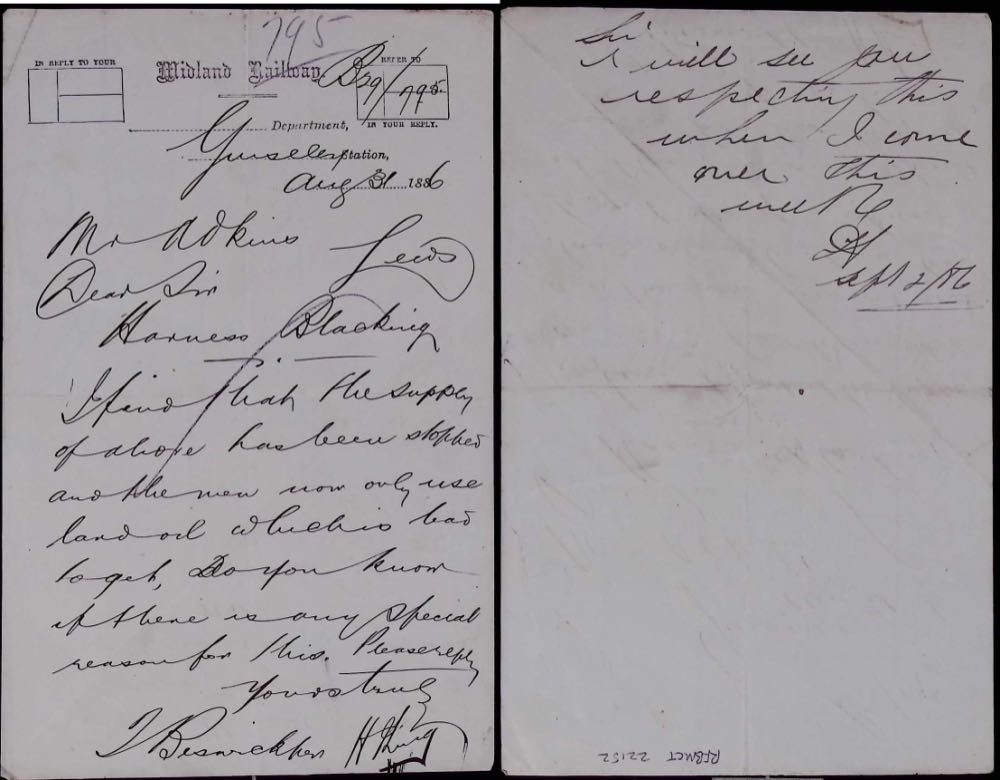 795
IN REPLY TO YOUR
Midland Railway.
REFER TO
B29/795.
IN YOUR REPLY.
Department,
Guiseley Station,
Aug 31 1886
Mr Adkins Leeds
Dear Sir
Harness Blacking
I find that the supply
of above has been stopped
and the men now only use
land oil which is bad
to get, Do you know
if there is any special
reason for this. Please reply
Yours truly
J Beswick per H King
Sir
I will see you
respecting this
when I come
over this
week
Sept 2/86
RFBMCT 22152